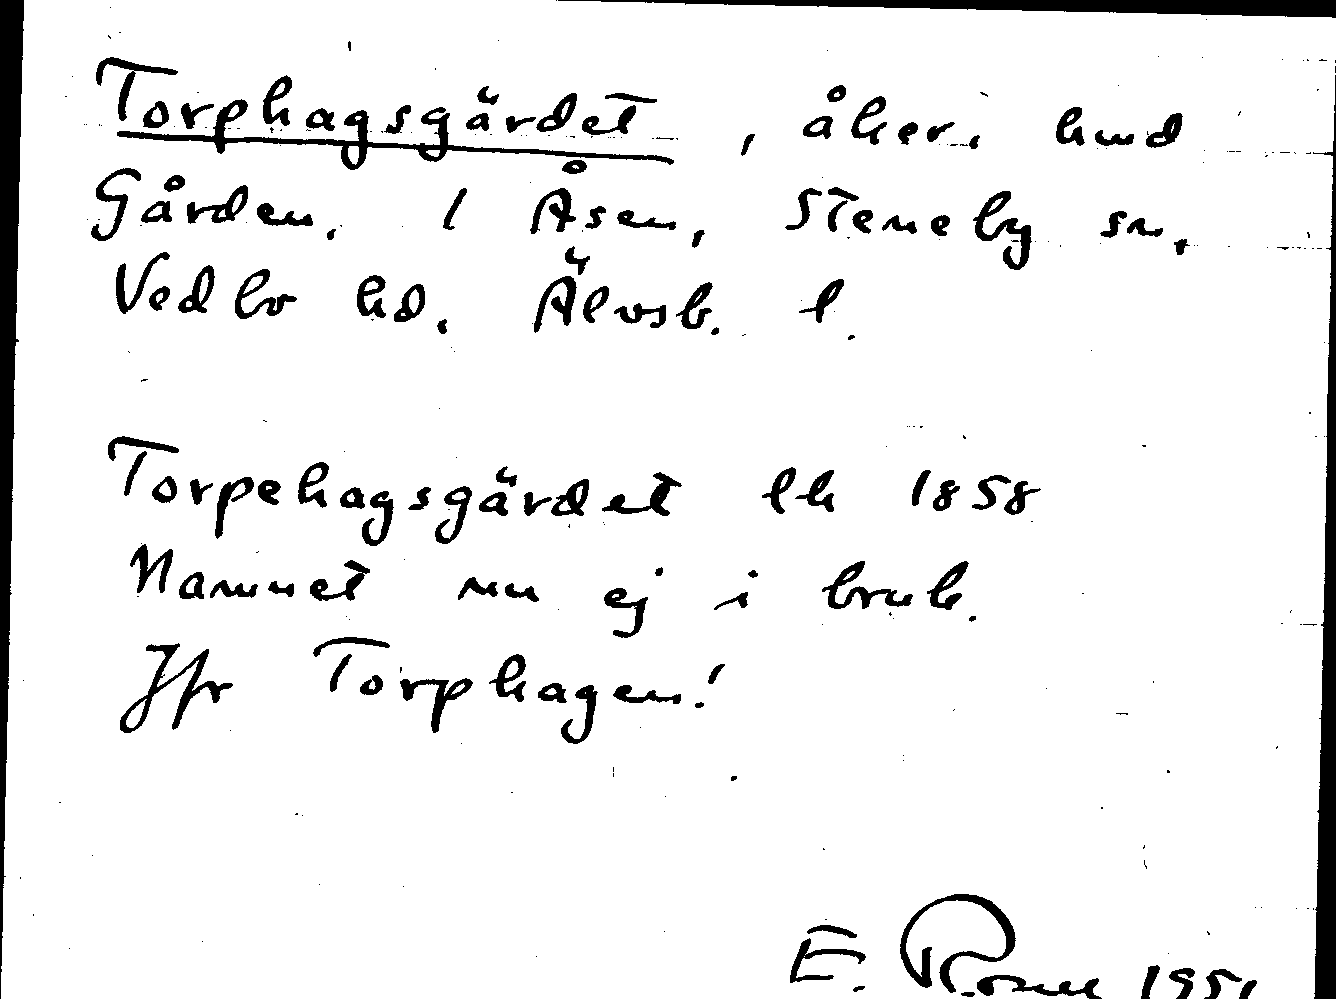 Torphagsgärdet, åker, hmd
Gården. 1 Åsen, Steneby sn,
Vedbo hd. Älvsb. l.
Torpehagsgärdet lh 1858
Namnet nu ej i bruk.
Jfr Torphagen!
E. 1951